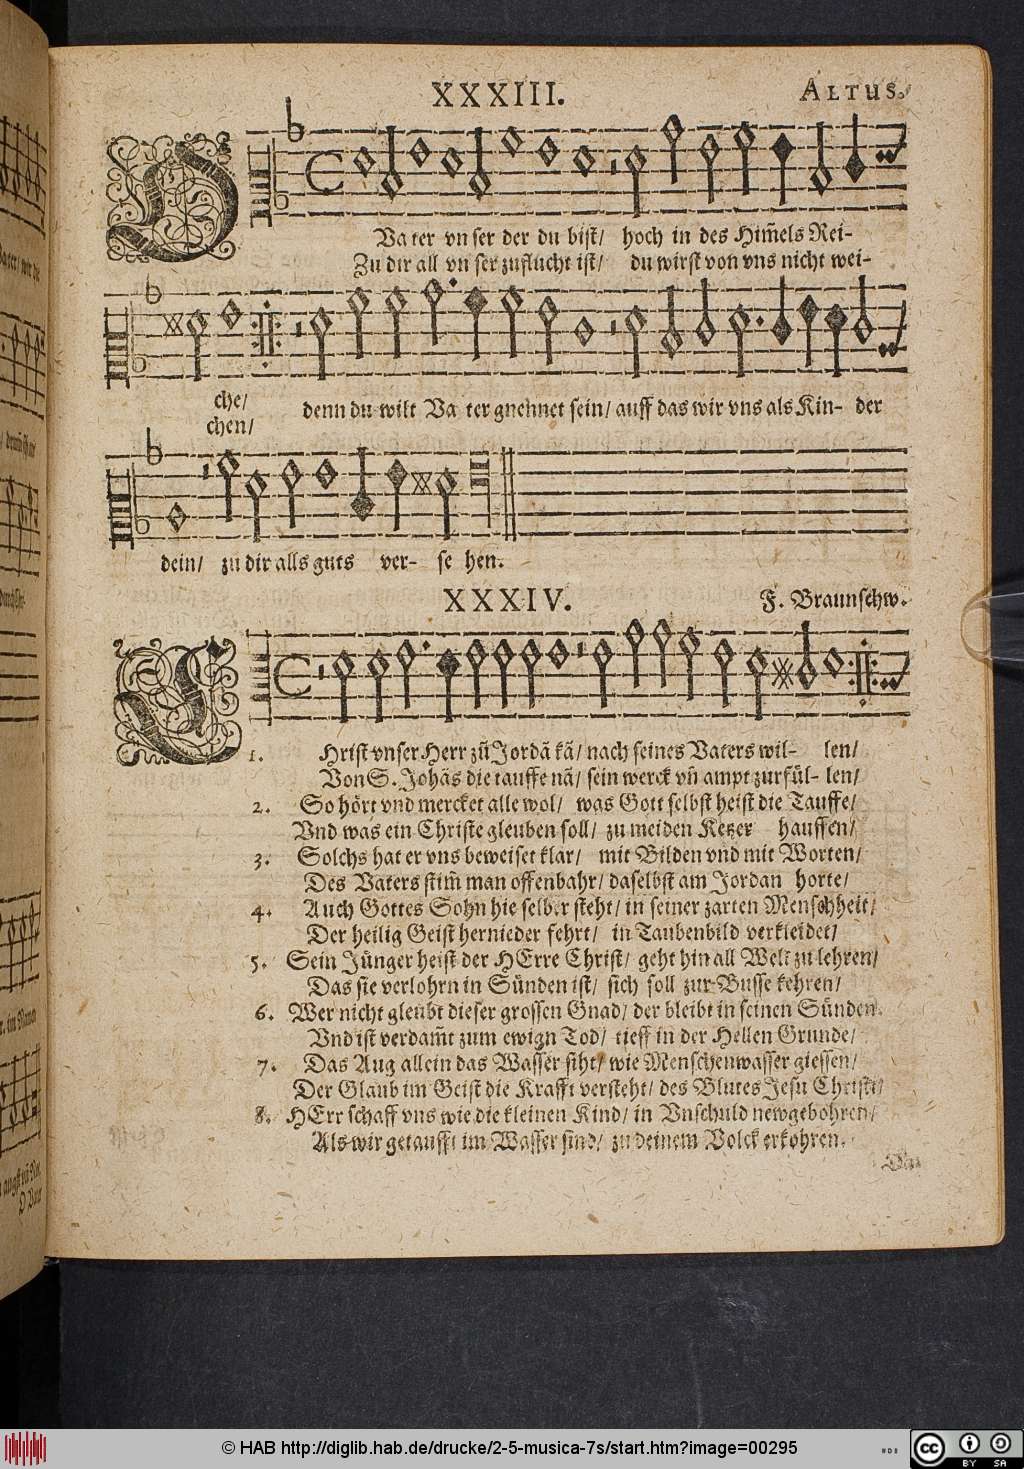 XXXIII. ALTUS.
O Vater vnser der du bist/ hoch in des Him̃els Rei-
Zu dir all vnser zuflucht ist/ du wirst von vns nicht wei-
che/
chen/
denn du wilt Vater gnennet sein/ auff das wir vns als Kin- der
dein/ zu dir alls guts ver- sehen.
XXXIV. F. Braunschw.
1. CHrist vnser Herr zũ Jordã kã/ nach seines Vaters wil- len/
Von S. Johãs die tauffe nã/ sein werck vñ ampt zurfül- len/
2. So hört vnd mercket alle wol/ was Gott selbst heist die Tauffe/
Vnd was ein Christe gleuben soll/ zu meiden Ketzer hauffen/
3. Solchs hat er vns beweiset klar/ mit Bilden vnd mit Worten/
Des Vaters stim̃ man offenbahr/ daselbst am Jordan horte/
4. Auch Gottes Sohn hie selber steht/ in seiner zarten Menschheit/
Der heilig Geist hernieder fehrt/ in Taubenbild verkleidet/
5. Sein Jünger heist der HErre Christ/ geht hin all Welt zu lehren/
Das sie verlohrn in Sünden ist/ sich soll zur Busse kehren/
6. Wer nicht gleubt dieser grossen Gnad/ der bleibt in seinen Sünden.
Vnd ist verdam̃t zum ewign Tod/ tieff in der Hellen Grunde/
7. Das Aug allein das Wasser siht/ wie Menschenwasser giessen/
Der Glaub im Geist die Krafft versteht/ des Blutes Jesu Christi/
8. HErr schaff vns wie die kleinen Kind/ in Vnschuld newgebohren/
Als wir getaufft im Wasser sind/ zu deinem Volck erkohren.
© HAB http://diglib.hab.de/drucke/2-5-musica-7s/start.htm?image=00295
CC BY SA